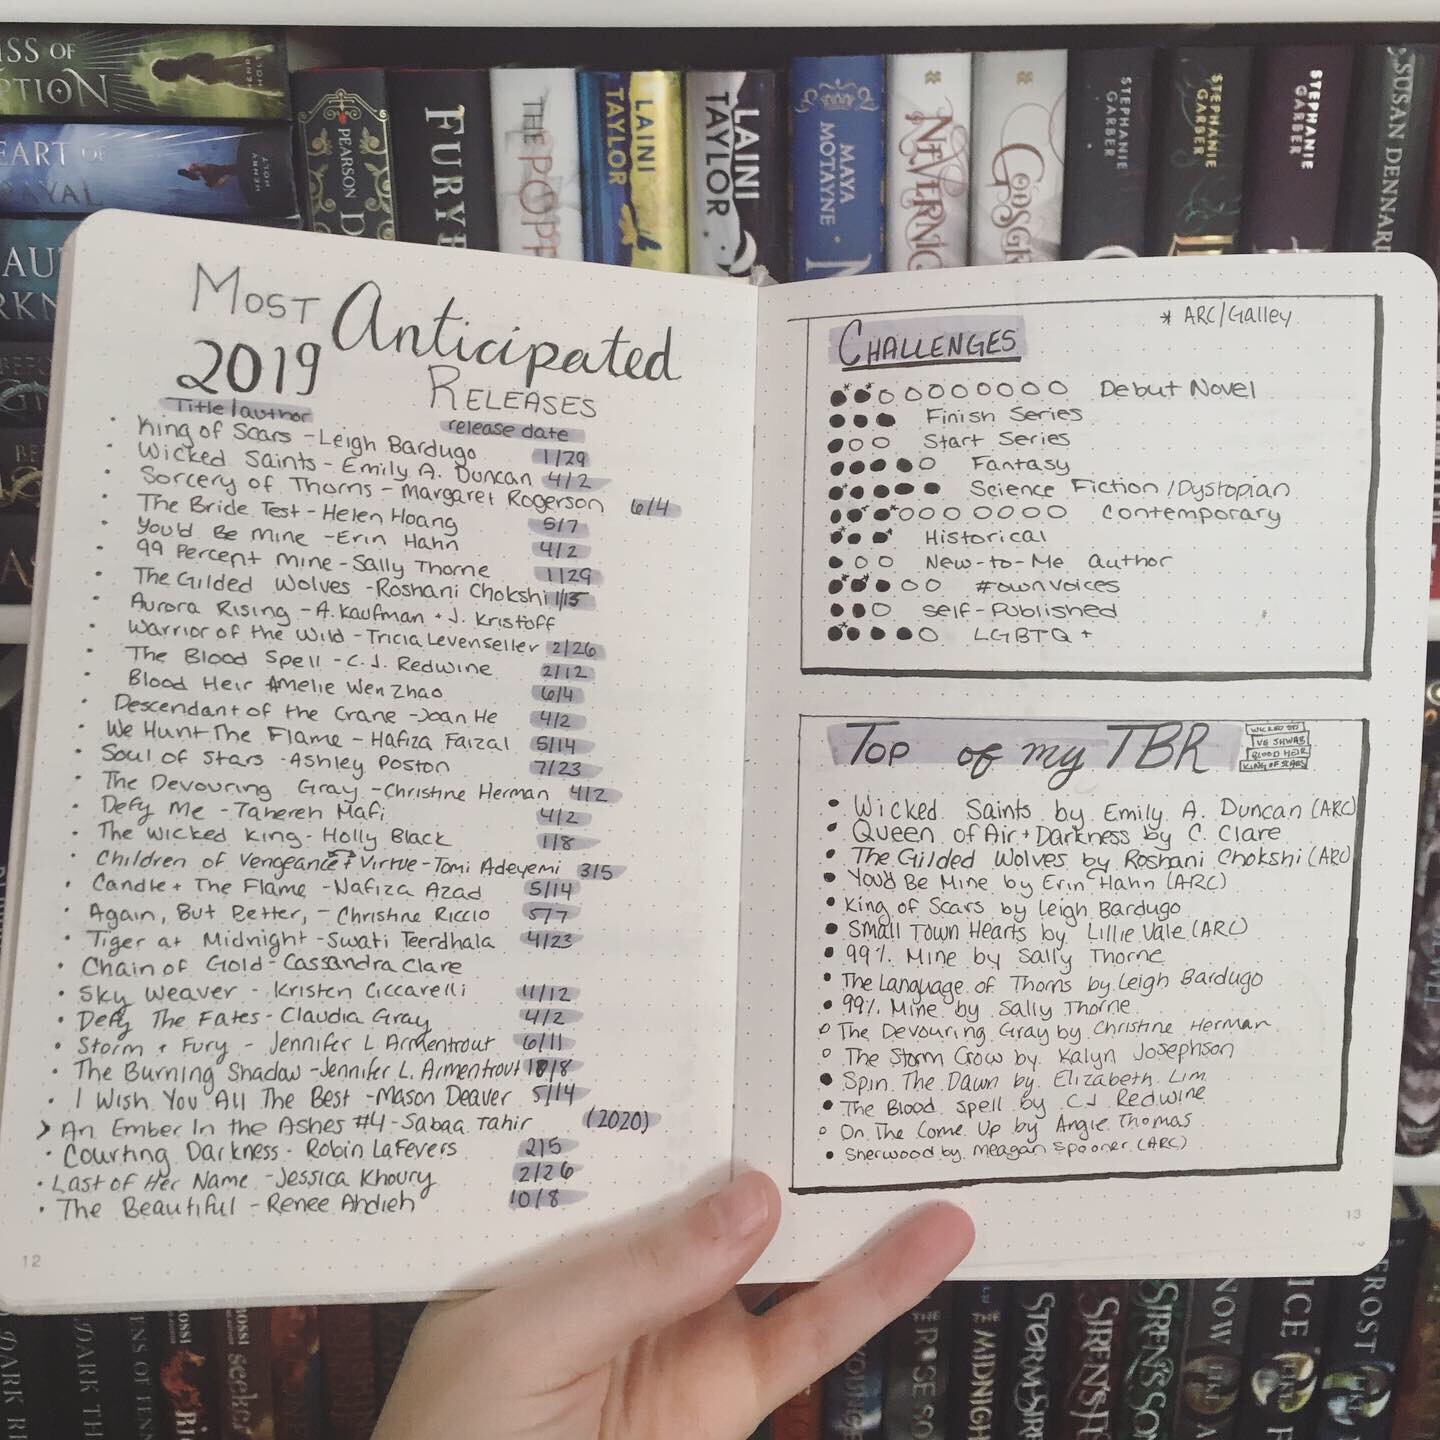 ISS OF
PTION
EART OF
RAYAL
PEARSON
FURY
THE
POPP
LAINI
TAYLOR
LAINI
TAYLOR
MAYA
MOTAYNE
NEVERNIG
GODSGR
STEPHANIE
GARBER
STEPHANIE
GARBER
STEPHANIE
GARBER
SUSAN DENNARD
MOST Anticipated
2019 RELEASES
Title/author release date
• King of Scars - Leigh Bardugo 1/29
• Wicked Saints - Emily A. Duncan 4/2
• Sorcery of Thorns - Margaret Rogerson 6/4
• The Bride Test - Helen Hoang 5/7
• You'd Be Mine - Erin Hahn 4/2
• 99 Percent Mine - Sally Thorne 1/29
• The Gilded Wolves - Roshani Chokshi 1/15
• Aurora Rising - A. Kaufman + J. Kristoff
• Warrior of the Wild - Tricia Levenseller 2/26
• The Blood Spell - C.J. Redwine 2/12
• Blood Heir Amelie Wen Zhao 6/4
• Descendant of the Crane - Joan He 4/2
• We Hunt The Flame - Hafiza Faizal 5/14
• Soul of Stars - Ashley Poston 7/23
• The Devouring Gray - Christine Herman 4/2
• Defy Me - Tahereh Mafi 4/2
• The Wicked King - Holly Black 1/8
• Children of Vengeance + Virtue - Tomi Adeyemi 3/5
• Candle + The Flame - Nafiza Azad 5/14
• Again, But Better, - Christine Riccio 5/7
• Tiger at Midnight - Swati Teerdhala 4/23
• Chain of Gold - Cassandra Clare
• Sky Weaver - Kristen Ciccarelli 11/12
• Defy The Fates - Claudia Gray 4/2
• Storm + Fury - Jennifer L Armentrout 6/11
• The Burning Shadow - Jennifer L. Armentrout 10/8
• I Wish You All The Best - Mason Deaver 5/14
> An Ember In the Ashes #4 - Sabaa Tahir (2020)
• Courting Darkness - Robin LaFevers 2/5
• Last of Her Name - Jessica Khoury 2/26
• The Beautiful - Renee Ahdieh 10/8
12
* ARC/Galley
CHALLENGES
Debut Novel
Finish Series
Start Series
Fantasy
Science Fiction/Dystopian
Contemporary
Historical
New-to-Me author
#ownvoices
Self-Published
LGBTQ+
TOP of my TBR
WICKED STS
VE SHWAB
BLOOD HEIR
KING OF SCARS
• Wicked Saints by Emily A. Duncan (ARC)
• Queen of Air + Darkness by C. Clare
• The Gilded Wolves by Roshani Chokshi (ARC)
• You'd Be Mine by Erin Hahn (ARC)
• King of Scars by Leigh Bardugo
• Small Town Hearts by Lillie Vale (ARC)
• 99% Mine by Sally Thorne
• The Language of Thorns by Leigh Bardugo
• 99% Mine by Sally Thorne
○ The Devouring Gray by Christine Herman
○ The Storm Crow by Kalyn Josephson
• Spin The Dawn by Elizabeth Lim
• The Blood Spell by CJ Redwine
○ On The Come Up by Angie Thomas
• Sherwood by Meagan Spooner (ARC)
13
DARK RE
DARK TH
seeker
THE
MIDNIGH
STORMSIRE
SIREN'S
SIREN'S SON
NOW
ICE
FROST